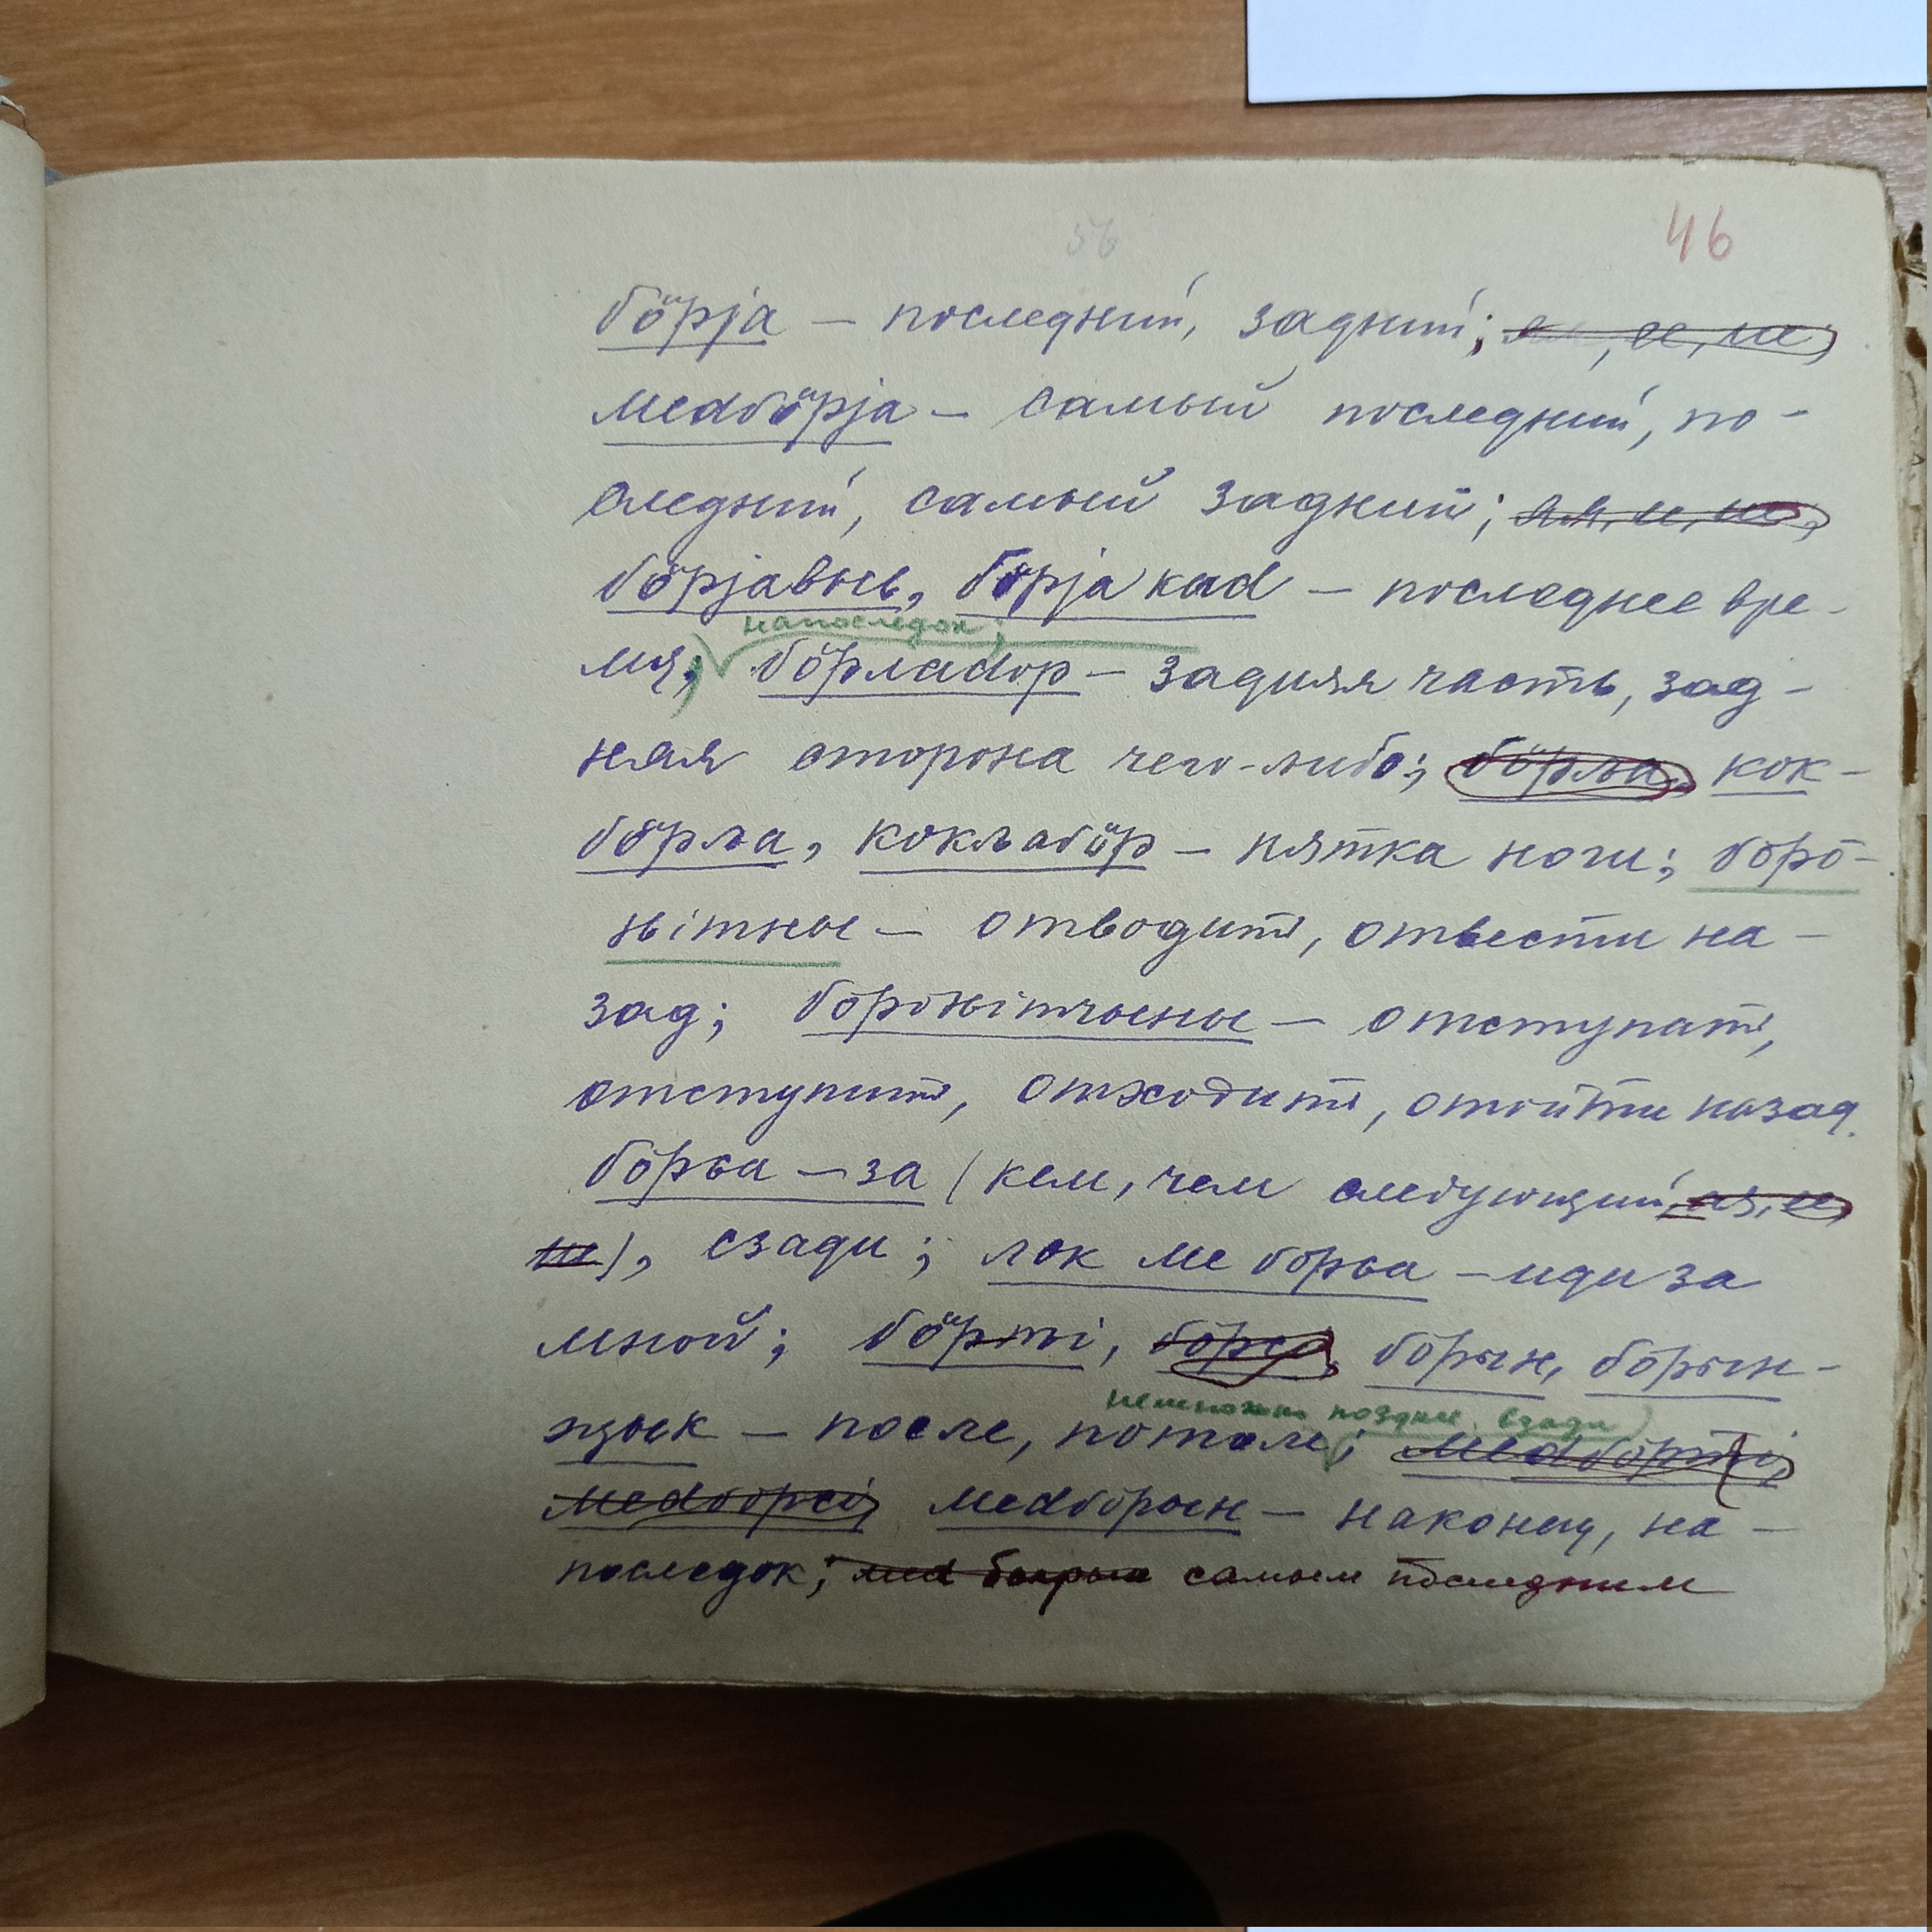 56 46
бӧрја — последний, задний; ая, ее, ие;
меdбӧрја — самый последний, по-
следний, самый задний; ая, ее, ие,
бӧрјавыв, бӧрја каd — последнее вре-
напоследок;
мя; бӧрлаdор — задняя часть, зад-
няя сторона чего-либо; бӧрља, кок-
бӧрља, кокљабӧр — пятка ноги; бӧрӧ-
њітны — отводить, отвести на-
зад; бӧрӧњітчыны — отступать,
отступить, отходить, отойти назад.
бӧрса — за (кем, чем следующий, ая, ее,
ие), сзади; лок ме бӧрса — иди за
мной; бӧрті, бӧрсӓ, бӧрын, бӧрын-
немножко позднее, сзади
џык — после, потом; меdбӧрті,
меdбӧрсі, меdбӧрын — наконец, на-
последок; меd самым последним